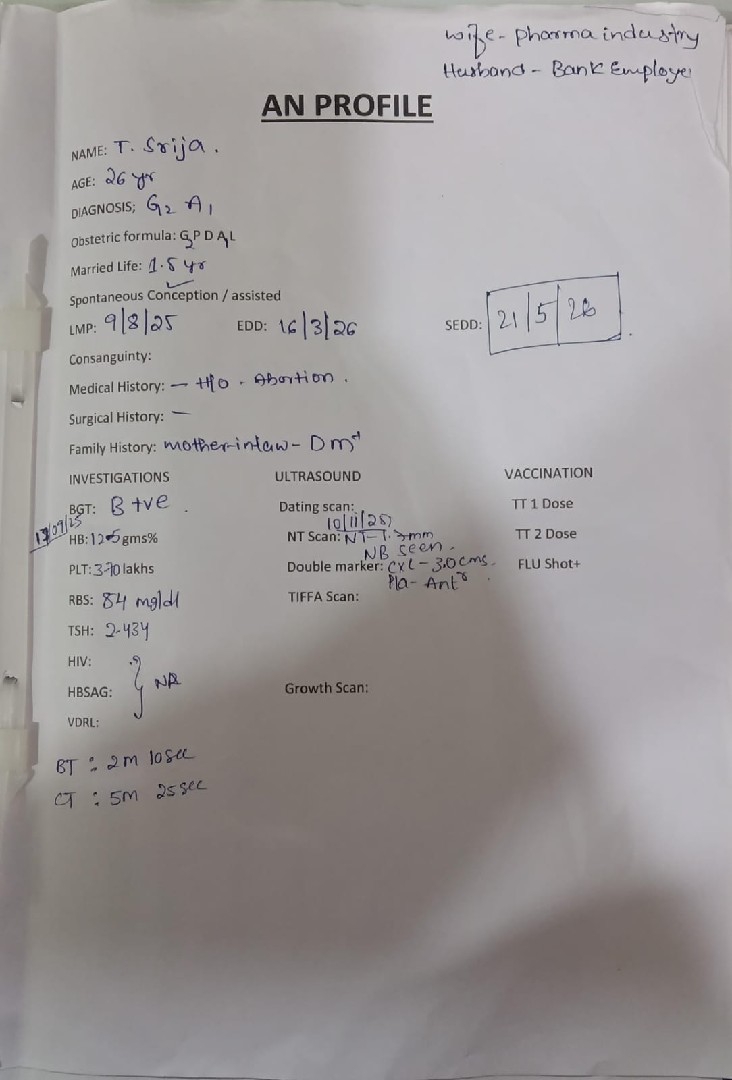 wife - pharma industry
Husband - Bank Employe
AN PROFILE
NAME: T. Srija.
AGE: 26 yr
DIAGNOSIS; G2 A1
Obstetric formula: G2 P D A1 L
Married Life: 1.5 yr
Spontaneous Conception / assisted
LMP: 9/8/25 EDD: 16/3/26 SEDD: 21/5/26
Consanguinty:
Medical History: - H/o. Abortion.
Surgical History: -
Family History: mother-in-law - Dm+
INVESTIGATIONS ULTRASOUND VACCINATION
BGT: B +ve. Dating scan: TT 1 Dose
10/11/25
HB: gms% NT Scan: NT- mm TT 2 Dose
NB seen.
PLT: lakhs Double marker: CxL - 3.0 cms. FLU Shot+
Pla - Ant
RBS: 84 mg/dl TIFFA Scan:
TSH: 2.434
HIV:
HBSAG: } NR Growth Scan:
VDRL:
BT : 2m 10sec
CT : 5m 25sec